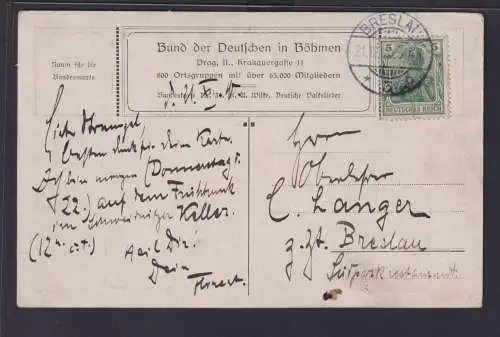 BRESLAU
21.11
Bund der Deutschen in Böhmen
Prag, II., Krakauergasse 11
800 Ortsgruppen mit über 65,000 Mitgliedern
Raum für die
Bundesmarke
5 5
DEUTSCHES REICH
Besten Dank für die Karte.
Ich bin morgen (Donnerstag d.
22.) auf dem Frühtrunk
im Schweidnitzer Keller.
Heil Dir!
Dein
Herrn
Oberlehrer
C. Langer
z. Zt. Breslau
Südparkrestaurant